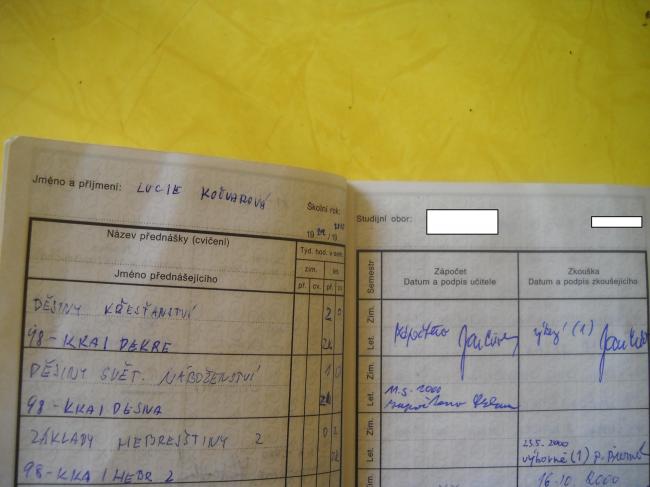 Jméno a příjmení: LUCIE KOČVAROVÁ
Školní rok:
Název přednášky (cvičení)
Týd. hod. v sem.
zim. let.
Jméno přednášejícího
př. cv. př. cv.
DĚJINY KŘESŤANSTVÍ 2 0
98-KRA1 DEKRE Zk
DĚJINY SVĚT. NÁBOŽENSTVÍ 1 0
98-KRA1 DESNA
ZÁKLADY HEBREJŠTINY 2 0 2
98-KRA1 HEBR 2
Studijní obor:
Semestr
Zápočet
Datum a podpis učitele
Zkouška
Datum a podpis zkoušejícího
Zim.
Let. započteno výborně (1)
Zim.
11.5.2000
Let. započteno
Zim.
23.5.2000
Let. výborně (1)
16-10. 2000